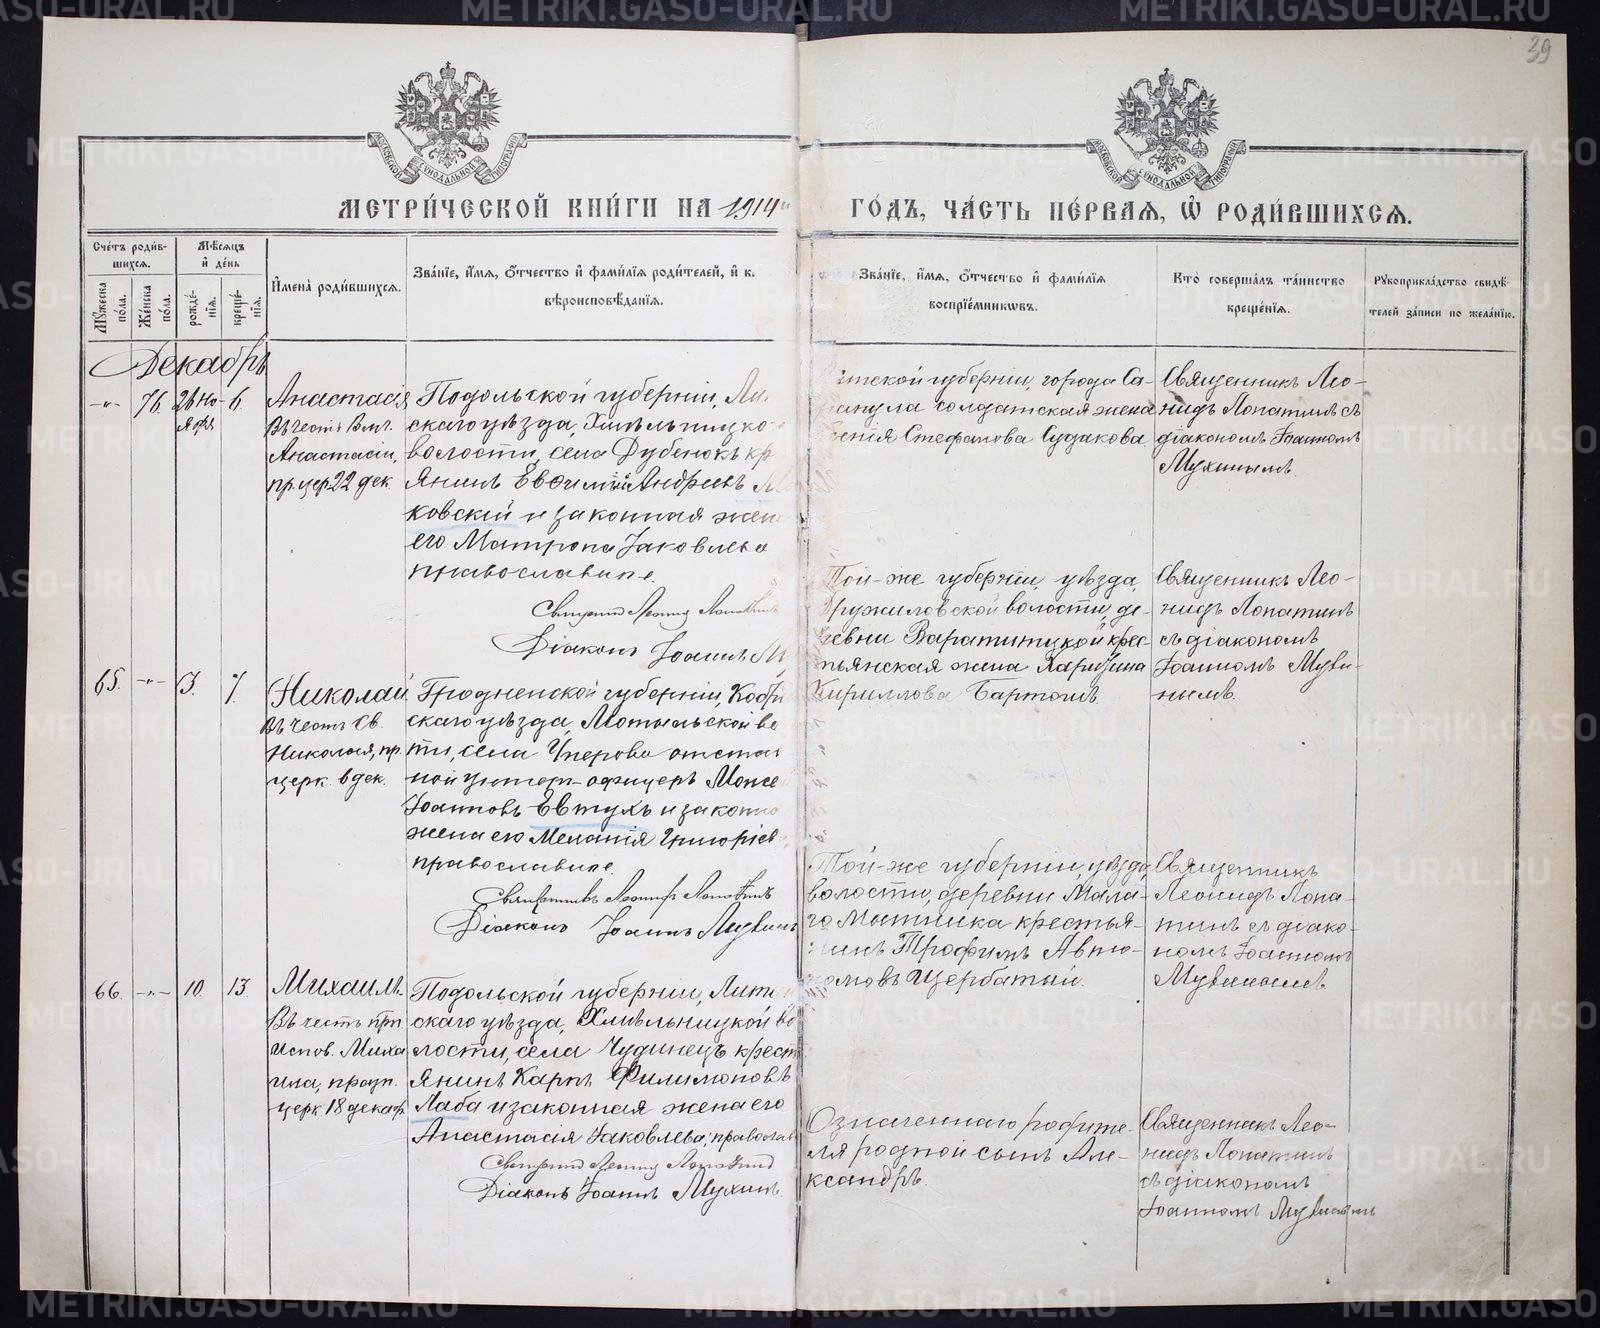 39
МОСКОВСКОЙ СѴНОДАЛЬНОЙ ТИПОГРАФІИ
МОСКОВСКОЙ СѴНОДАЛЬНОЙ ТИПОГРАФІИ
МЕТРИ́ЧЕСКОЙ КНИ́ГИ НА 1914
ГО́ДЪ, ЧА́СТЬ ПЕ́РВАѦ, Ѡ҆ РОДИ́ВШИХСѦ.
Сче́тъ роди́в-
шихсѧ.
Мꙋ́жеска по́ла.
Же́нска по́ла.
Мѣ́сѧцъ
и҆ де́нь
рожде́-
нїѧ.
креще́-
нїѧ.
И҆мена̀ роди́вшихсѧ.
Зва́нїе, и҆́мѧ, ѻ҆́тчество и҆ фами́лїѧ роди́телей, и҆ к.
вѣроисповѣ́данїѧ.
Зва́нїе, и҆́мѧ, ѻ҆́тчество и҆ фами́лїѧ
воспрїе́мникѡвъ.
Кто̀ соверша́лъ та́инство
креще́нїѧ.
Рꙋкоприкла́дство свидѣ́-
телей за́писи по жела́нїю.
Декабрь
-"- 76. 26 но-
ября 6.
Анастасія
Въ честь Влмч.
Анастасіи,
пр. цер. 22 дек.
Подольской губерніи, Ли
скаго уѣзда, Хмѣльницко
волости, села Дубенокъ кр
янинъ Евѳимій Андреевъ
ковскій и законная жен
его Матрона Іаковлева
православные.
Священникъ Леонидъ Лопатинъ
Діаконъ Іоаннъ М
тской губерніи, города Са-
рапула солдатская жена
Стефанова Судакова.
Священникъ Лео-
нидъ Лопатинъ съ
діакономъ Іоанномъ
Мухинымъ.
65. -"- 3. 7.
Николай
Въ честь Св.
Николая, пр.
церк. 6 дек.
Гродненской губерніи, Кобри
скаго уѣзда, Мотыльской во
ти, села Упирова отстав
ной унтеръ-офицеръ Моисе
Іоанновъ Евтухъ и законна
жена его Меланія Григоріев
православные.
Священникъ Леонидъ Лопатинъ
Діаконъ Іоаннъ Мухинъ
Той-же губерніи, уѣзда,
Дружиловской волости, де-
ревни Варатицкой крес-
тьянская жена Харитина
Кириллова Бартошъ.
Священникъ Лео-
нидъ Лопатинъ
съ діакономъ
Іоанномъ Мухи-
нымъ.
66. -"- 10. 13.
Михаилъ.
Въ честь прп.
испов. Миха
ила, празн.
церк. 18 декаб.
Подольской губерніи, Литин
скаго уѣзда, Хмѣльницкой во
лости, села Чудинецъ крест
янинъ Карпъ Филимоновъ
Лаба и законная жена его
Анастасія Іаковлева, православ
Священникъ Леонидъ Лопатинъ
Діаконъ Іоаннъ Мухинъ.
Той-же губерніи, уѣзда,
волости, деревни Мала-
го Мытника крестья-
нинъ Трофимъ Авто-
номовъ Щербатый.
Священникъ
Леонидъ Лопа-
тинъ съ діако-
номъ Іоанномъ
Мухинымъ
Означеннаго родите-
ля родной сынъ Але-
ксандръ.
Священникъ Лео-
нидъ Лопатинъ
съ діакономъ
Іоанномъ Мухинымъ
METRIKI.GASO-URAL.RU